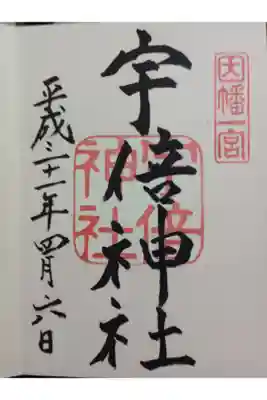 因幡一宮
宇倍神社
宇倍神社
平成二十一年四月六日